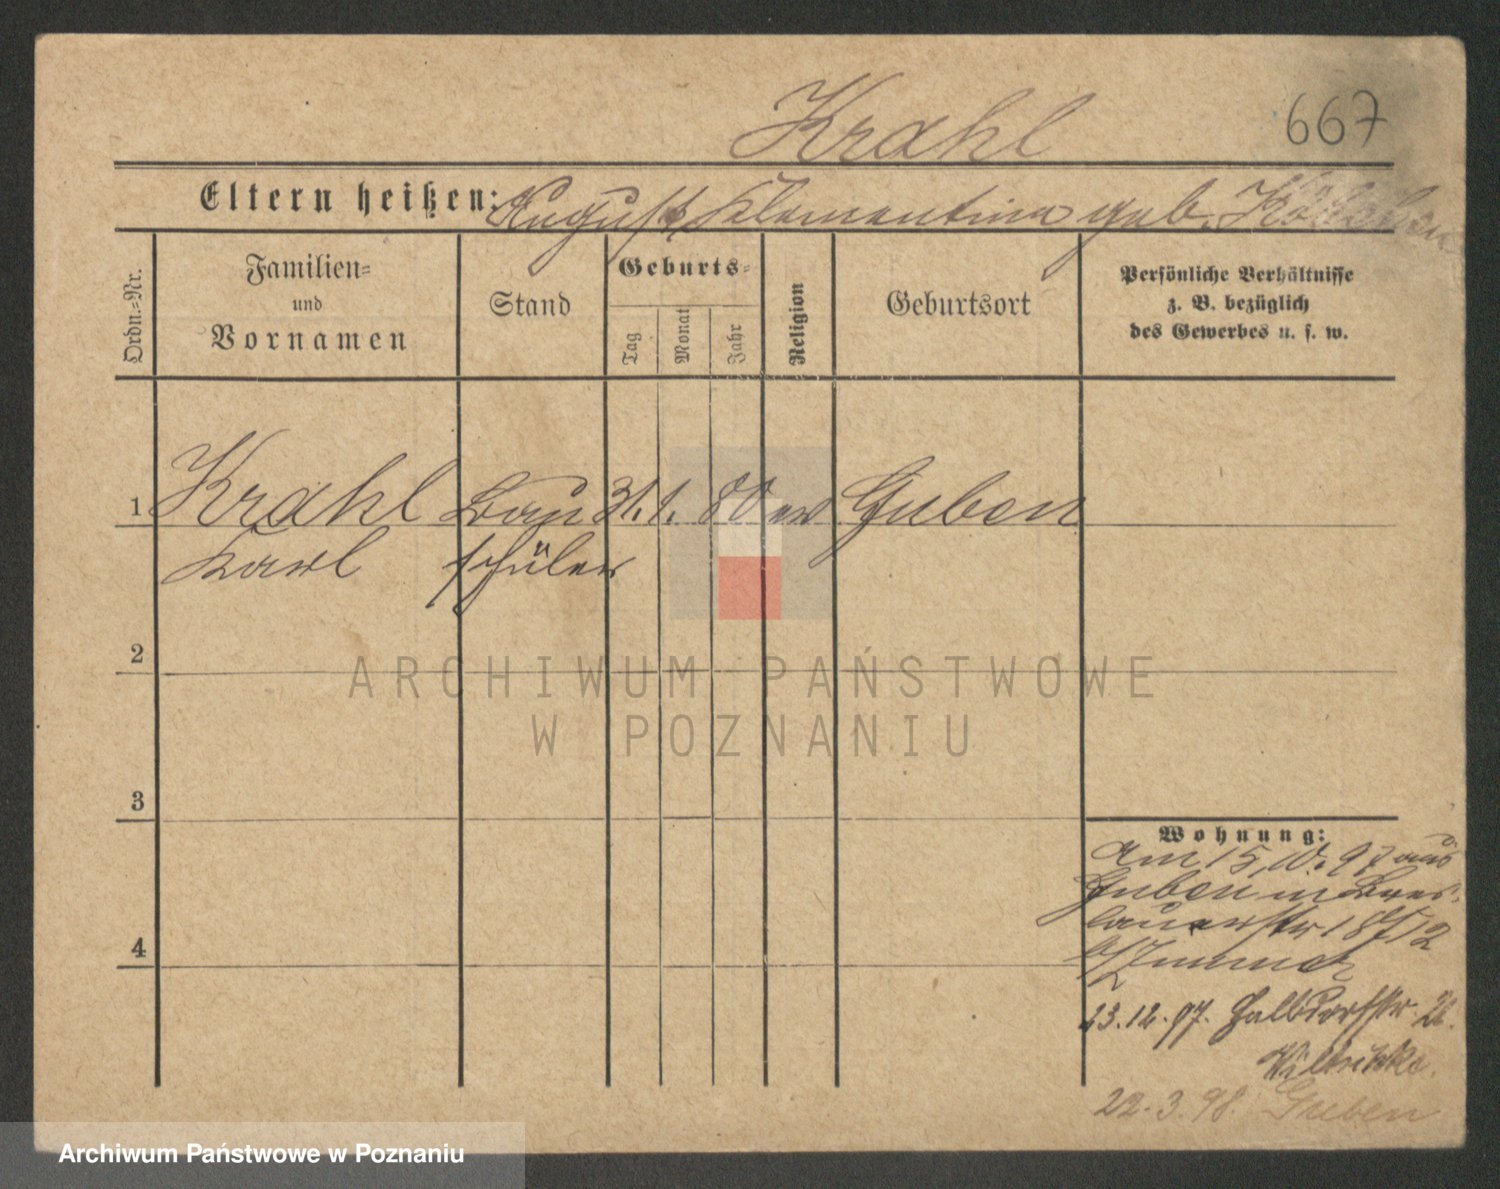 Krahl 667
Eltern heißen: August Klementine geb.
Ordn.-Nr.
Familien-
und
Vornamen
Stand
Geburts-
Tag
Monat
Jahr
Religion
Geburtsort
Persönliche Verhältnisse
z. B. bezüglich
des Gewerbes u. s. w.
1 Krahl Bau 31. 1. 80 ev Guben
Karl schüler
2
ARCHIWUM PAŃSTWOWE
W POZNANIU
3
Wohnung:
Am 15.10.97 aus
Guben n Bres-
lauerstr 18
4
23.12.97. Halbdorfstr. 26.
22.3.98. Guben
Archiwum Państwowe w Poznaniu